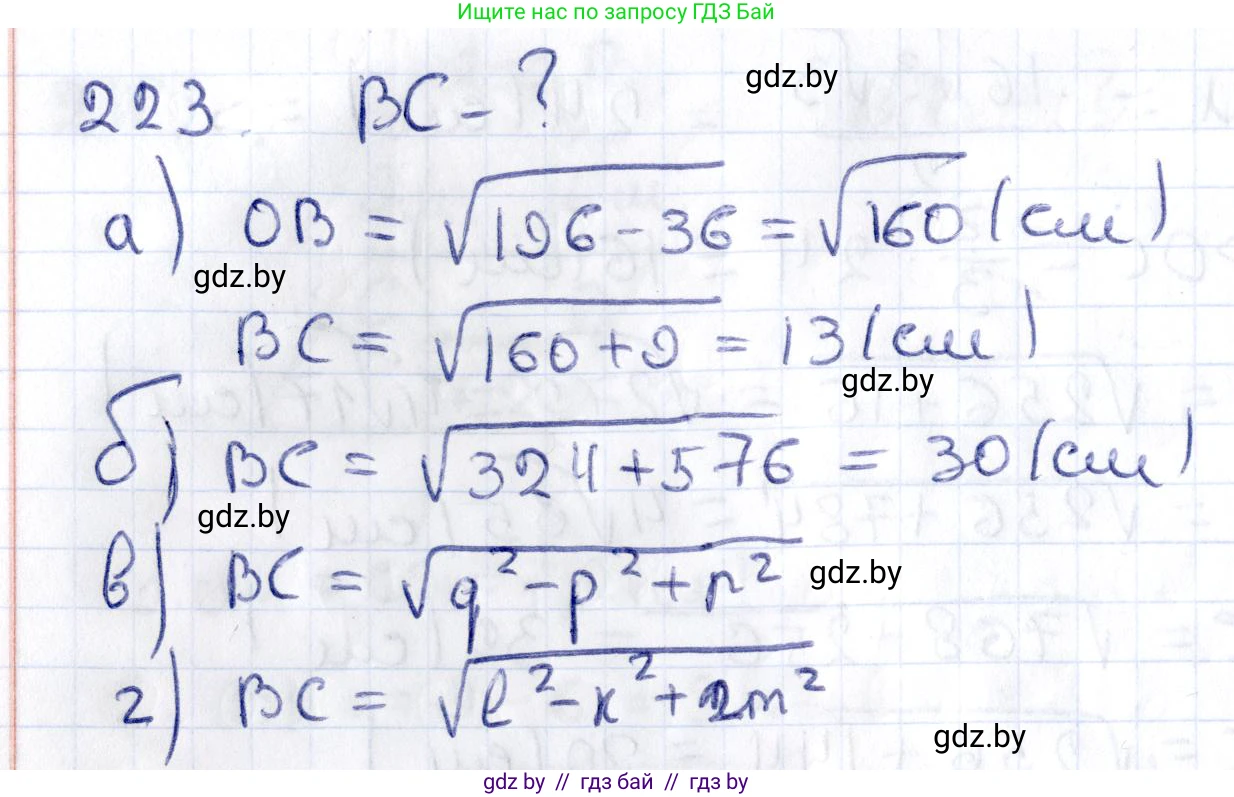 Ищите нас по запросу ГДЗ Бай
223. BC - ?
gdz.by
а) OB = √196-36 = √160 (см)
gdz.by
BC = √160+9 = 13 (см)
gdz.by
б) BC = √324+576 = 30 (см)
gdz.by
в) BC = √q²-p²+n²
gdz.by
г) BC = √l²-к²+2m²
gdz.by
gdz.by // гдз бай // гдз by